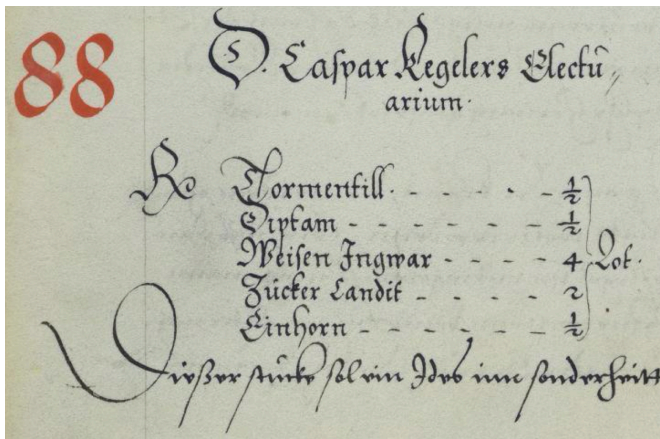 88
D. Caspar Kegelers Electu,
arium.
Rx Tormentill. - - - - - ½
Diptam - - - - - - ½
Weisen Ingwar - - - - 4 Lot.
Zucker Candit - - - - 2
Einhorn - - - - - - ½
Dießer stucke sol ein Ides inn sonderheitt